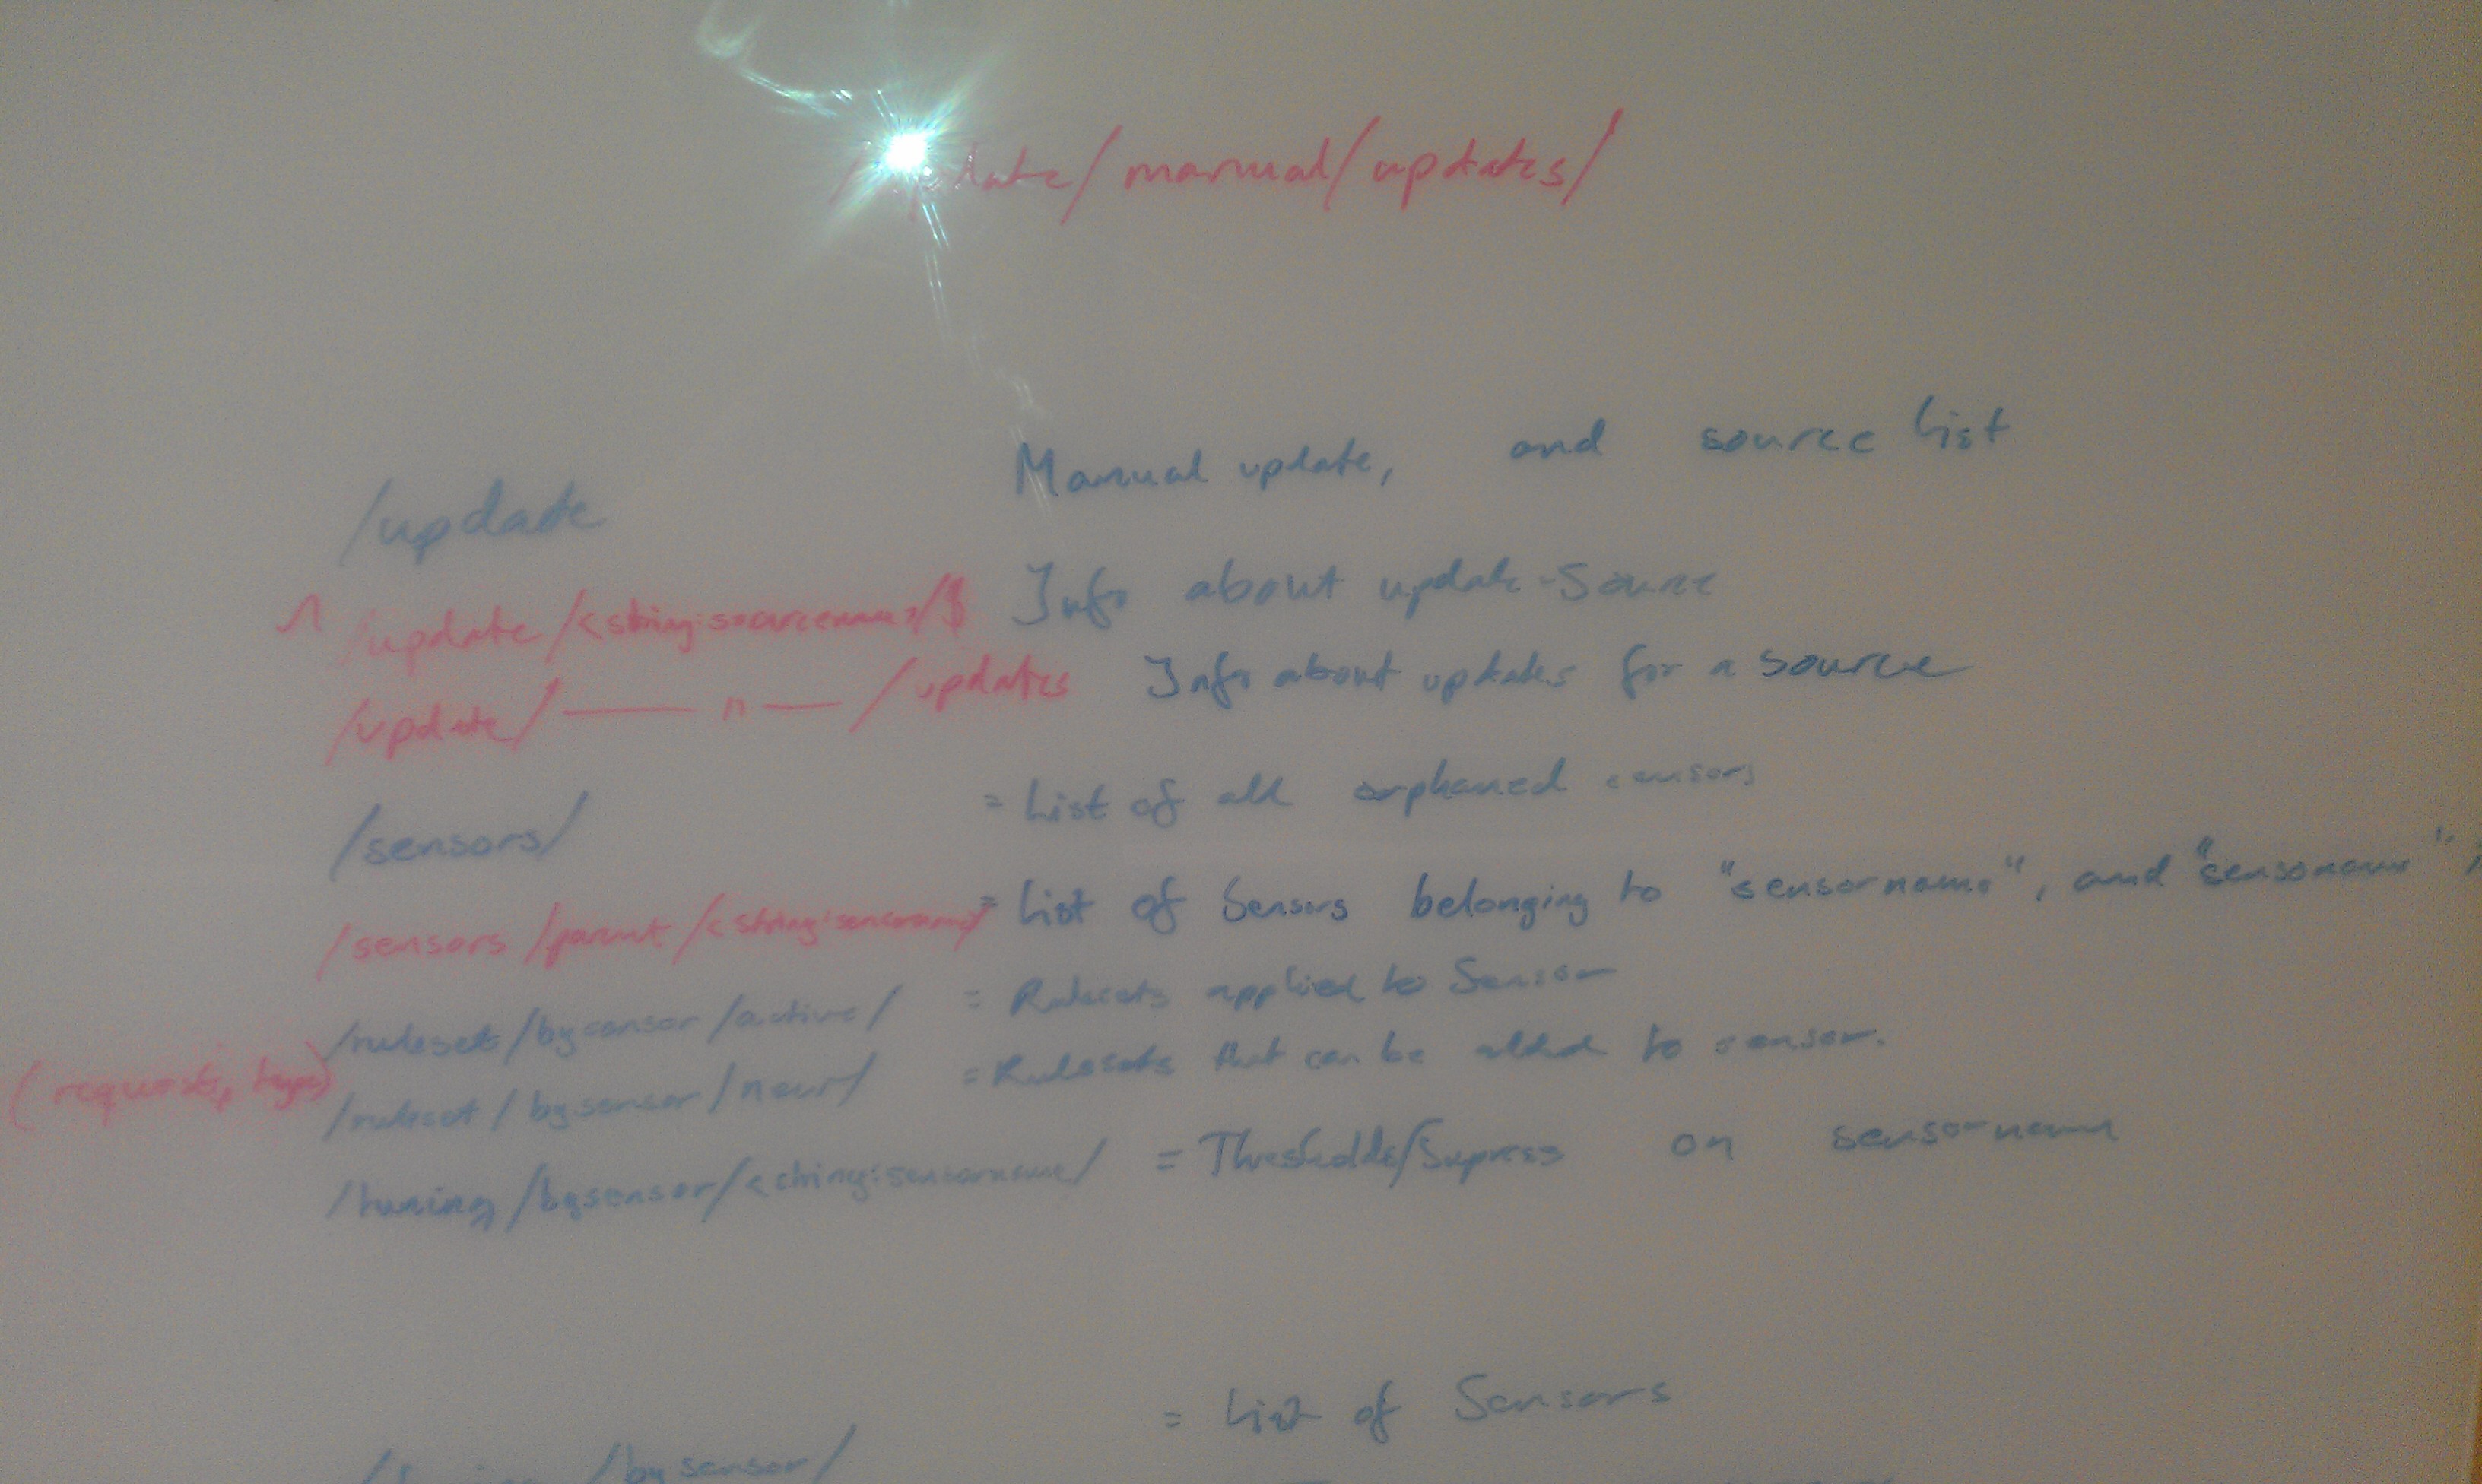 /manual/updates/
/update Manual update, and source list
^ /update/<string:sourcename>/$ Info about update-source
/update/ —— " —— /updates Info about updates for a source
/sensors/ = List of all orphaned sensors
/sensors/parent/<string:sensorname>/ = List of Sensors belonging to "sensorname", and "sensorname"
/rulesets/bysensor/active/ = Rulesets applied to Sensor
(request,
/ruleset/bysensor/new/ = Rulesets that can be added to sensor.
/tuning/bysensor/<string:sensorname/ = Thresholds/Supress on sensorname
= List of Sensors
/bysensor/